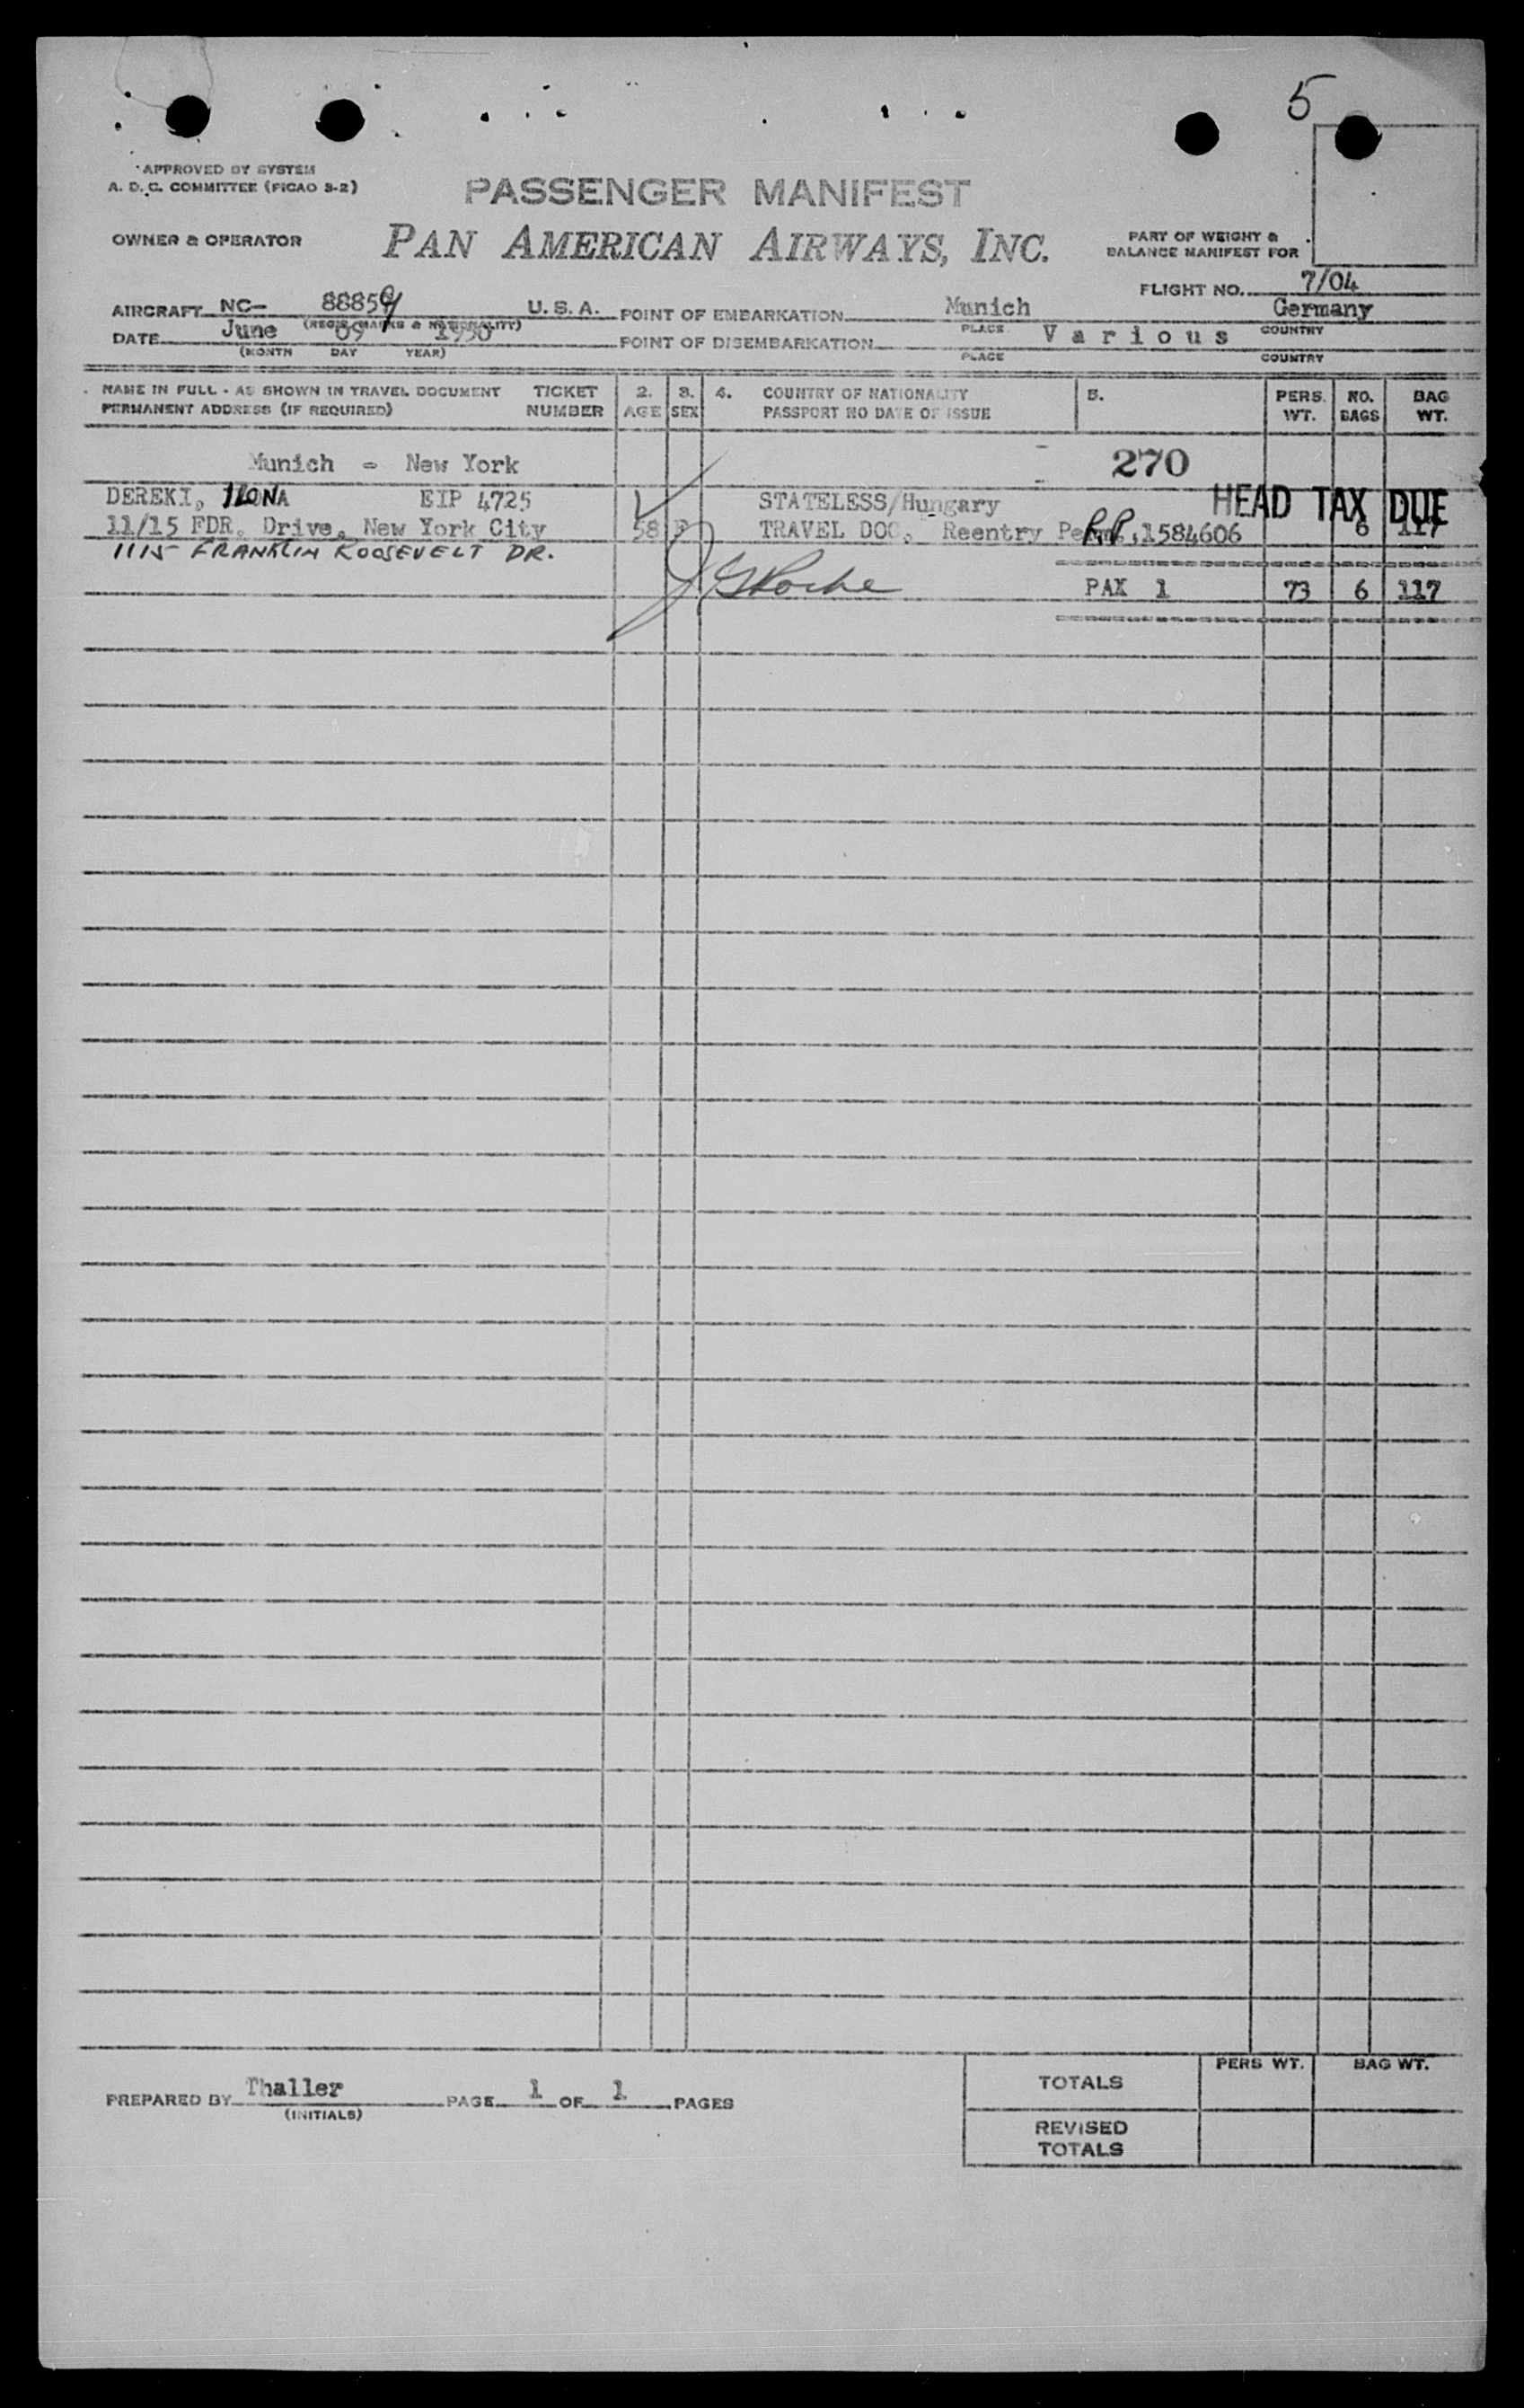 5
APPROVED BY SYSTEM
A. D. C. COMMITTEE (FICAO 3-2)
PASSENGER MANIFEST
OWNER & OPERATOR
PAN AMERICAN AIRWAYS, INC.
PART OF WEIGHT &
BALANCE MANIFEST FOR
FLIGHT NO. 7/04
AIRCRAFT NC- 88859 U. S. A. POINT OF EMBARKATION Munich Germany
(REGIS. MARKS & NATIONALITY) PLACE COUNTRY
DATE June 09 1950 POINT OF DISEMBARKATION Various
(MONTH DAY YEAR) PLACE COUNTRY
NAME IN FULL - AS SHOWN IN TRAVEL DOCUMENT TICKET 2. 3. 4. COUNTRY OF NATIONALITY 5. PERS. NO. BAG
PERMANENT ADDRESS (IF REQUIRED) NUMBER AGE SEX PASSPORT NO DATE OF ISSUE WT. BAGS WT.
Munich - New York 270
DEREKI, ILONA EIP 4725 STATELESS/Hungary HEAD TAX DUE
11/15 FDR. Drive, New York City 58 F TRAVEL DOC. Reentry R.P. 1584606 6 117
1115 FRANKLIN ROOSEVELT DR.
PAX 1 73 6 117
PREPARED BY Thaller PAGE 1 OF 1 PAGES
(INITIALS)
PERS WT. BAG WT.
TOTALS
REVISED
TOTALS